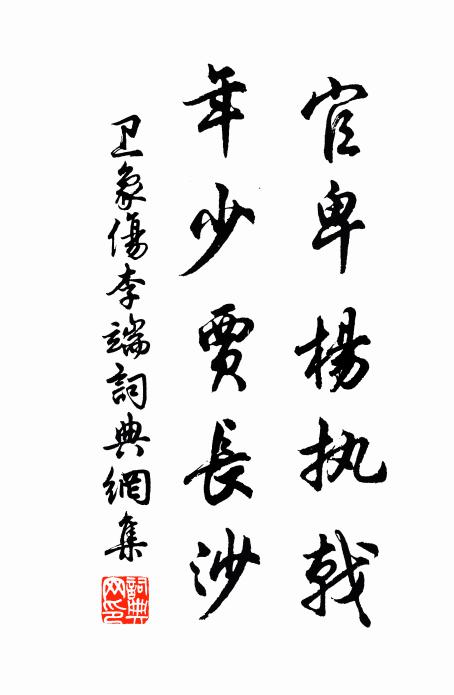 官卑楊执戟
年少賈長沙
卫象傷李端詞典網集
詞典网印